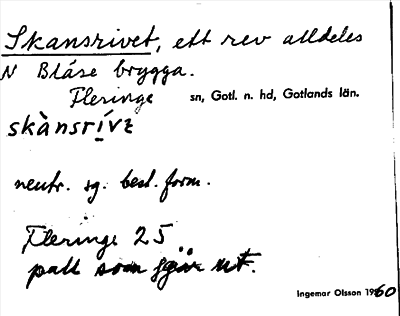 Skansrivet, ett rev alldeles
N Bläse brygga.
Fleringe sn, Gotl. n. hd, Gotlands län.
skànsrívɛ
neutr. sg. best. form.
Fleringe 25
pall som går ut.
Ingemar Olsson 1960